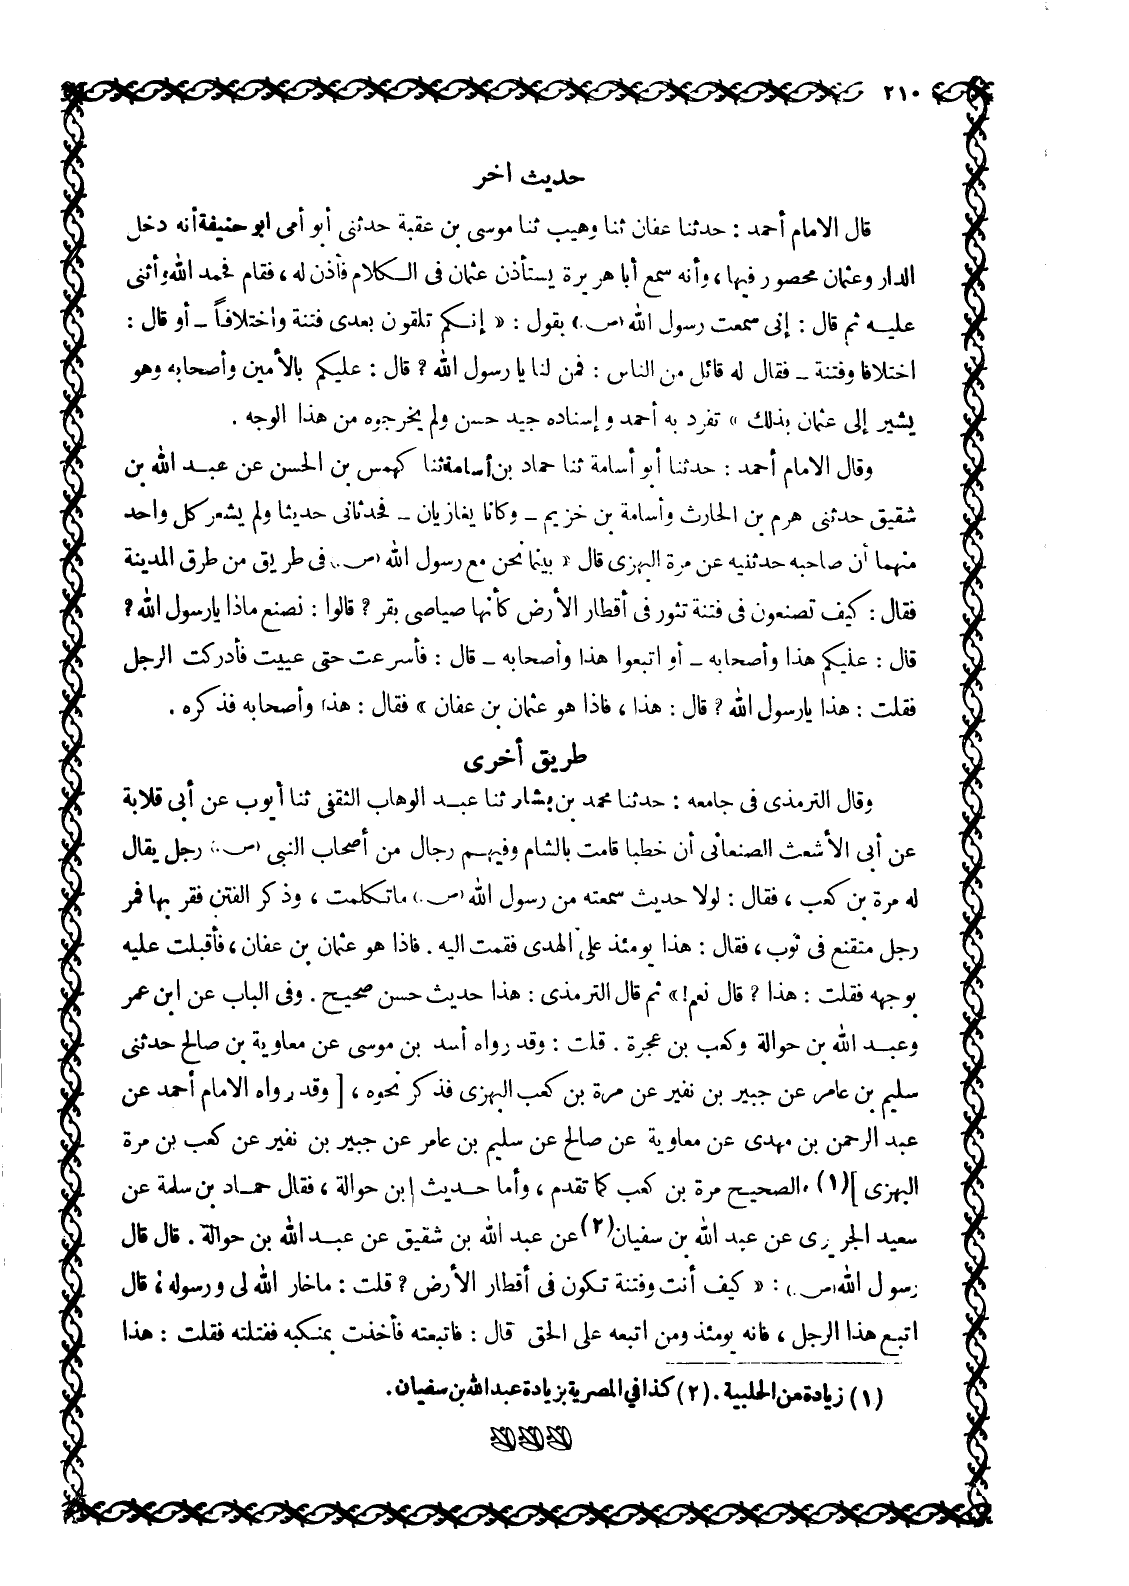 ٢١٠
حديث آخر
قال الامام أحمد : حدثنا عفان ثنا وهيب ثنا موسى بن عقبة حدثنى أبو أمى ابو حنيفة أنه دخل
الدار وعثمان محصور فيها ، وأنه سمع أبا هريرة يستأذن عثمان فى الكلام فأذن له ، فقام فحمد الله وأثنى
عليه ثم قال : إنى سمعت رسول الله (ص.) يقول : « إنكم تلقون بعدى فتنة واختلافاً ــ أو قال :
اختلافا وفتنة ــ فقال له قائل من الناس : فمن لنا يا رسول الله ? قال : عليكم بالأمين وأصحابه وهو
يشير إلى عثمان بذلك » تفرد به أحمد و إسناده جيد حسن ولم يخرجوه من هذا الوجه .
وقال الامام أحمد : حدثنا أبو أسامة ثنا حماد بن أسامة ثنا كهمس بن الحسن عن عبد الله بن
شقيق حدثنى هرم بن الحارث وأسامة بن خزيم ــ وكانا يغازيان ــ فحدثانى حديثا ولم يشعر كل واحد
منهما أن صاحبه حدثنيه عن مرة البهزى قال « بينما نحن مع رسول الله (ص.) فى طريق من طرق المدينة
فقال : كيف تصنعون فى فتنة تثور فى أقطار الأرض كأنها صياصى بقر ? قالوا : نصنع ماذا يارسول الله ?
قال : عليكم هذا وأصحابه ــ أو اتبعوا هذا وأصحابه ــ قال : فأسرعت حتى عييت فأدركت الرجل
فقلت : هذا يارسول الله ? قال : هذا ، فاذا هو عثمان بن عفان » فقال : هذا وأصحابه فذكره .
طريق أخرى
وقال الترمذى فى جامعه : حدثنا محمد بن بشار ثنا عبد الوهاب الثقفى ثنا أيوب عن أبى قلابة
عن أبى الأشعث الصنعانى أن خطبا قامت بالشام وفيهم رجال من أصحاب النبى (ص.) رجل يقال
له مرة بن كعب ، فقال : لولا حديث سمعته من رسول الله (ص.) ماتكلمت ، وذكر الفتن فقر بها فمر
رجل متقنع فى ثوب ، فقال : هذا يومئذ على الهدى فقمت اليه . فاذا هو عثمان بن عفان ، فأقبلت عليه
بوجهه فقلت : هذا ? قال نعم ! » ثم قال الترمذى : هذا حديث حسن صحيح . وفى الباب عن ابن عمر
وعبد الله بن حوالة وكعب بن عجرة . قلت : وقد رواه أسد بن موسى عن معاوية بن صالح حدثنى
سليم بن عامر عن جبير بن نفير عن مرة بن كعب البهزى فذكر نحوه ، [ وقد رواه الامام أحمد عن
عبد الرحمن بن مهدى عن معاوية عن صالح عن سليم بن عامر عن جبير بن نفير عن كعب بن مرة
البهزى ](١) ، الصحيح مرة بن كعب كما تقدم ، وأما حديث ابن حوالة ، فقال حماد بن سلمة عن
سعيد الجريرى عن عبد الله بن سفيان(٢) عن عبد الله بن شقيق عن عبد الله بن حوالة . قال قال
رسول الله (ص.) : « كيف أنت وفتنة تكون فى أقطار الأرض ? قلت : ماخار الله لى ورسوله ، قال
اتبع هذا الرجل ، فانه يومئذ ومن اتبعه على الحق قال : فاتبعته فأخذت بمنكبه ففتلته فقلت : هذا
(١) زيادة من الحلبية . (٢) كذا في المصرية بزيادة عبد الله بن سفيان .